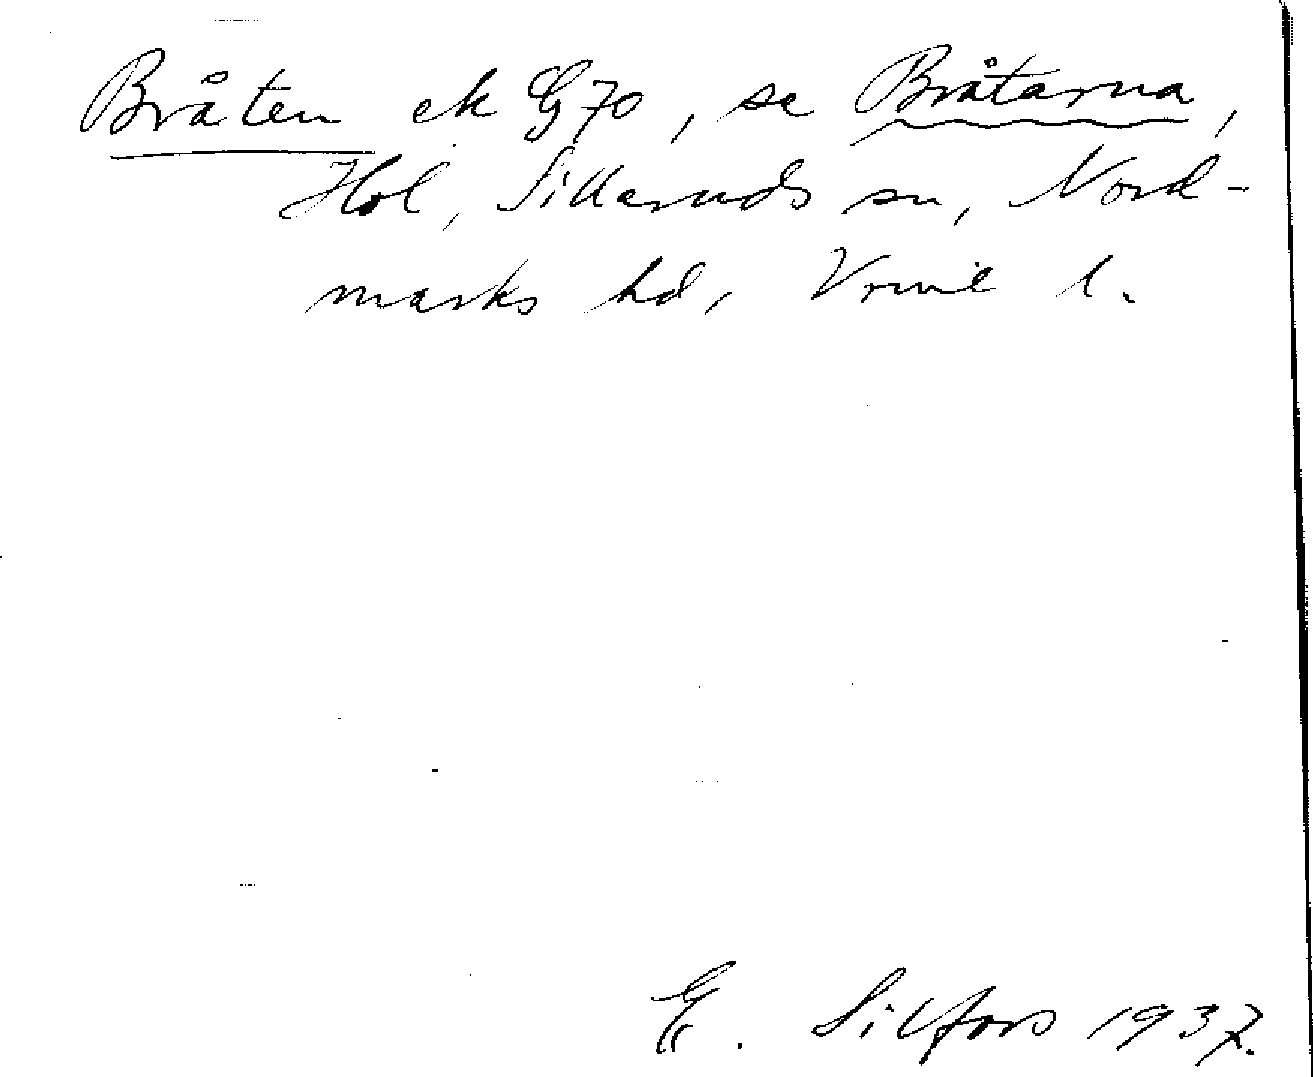 Bråten ek G70, se Bråtarna,
Hol, Silleruds sn, Nord-
marks hd, Vrml l.
G. Silfors 1937.